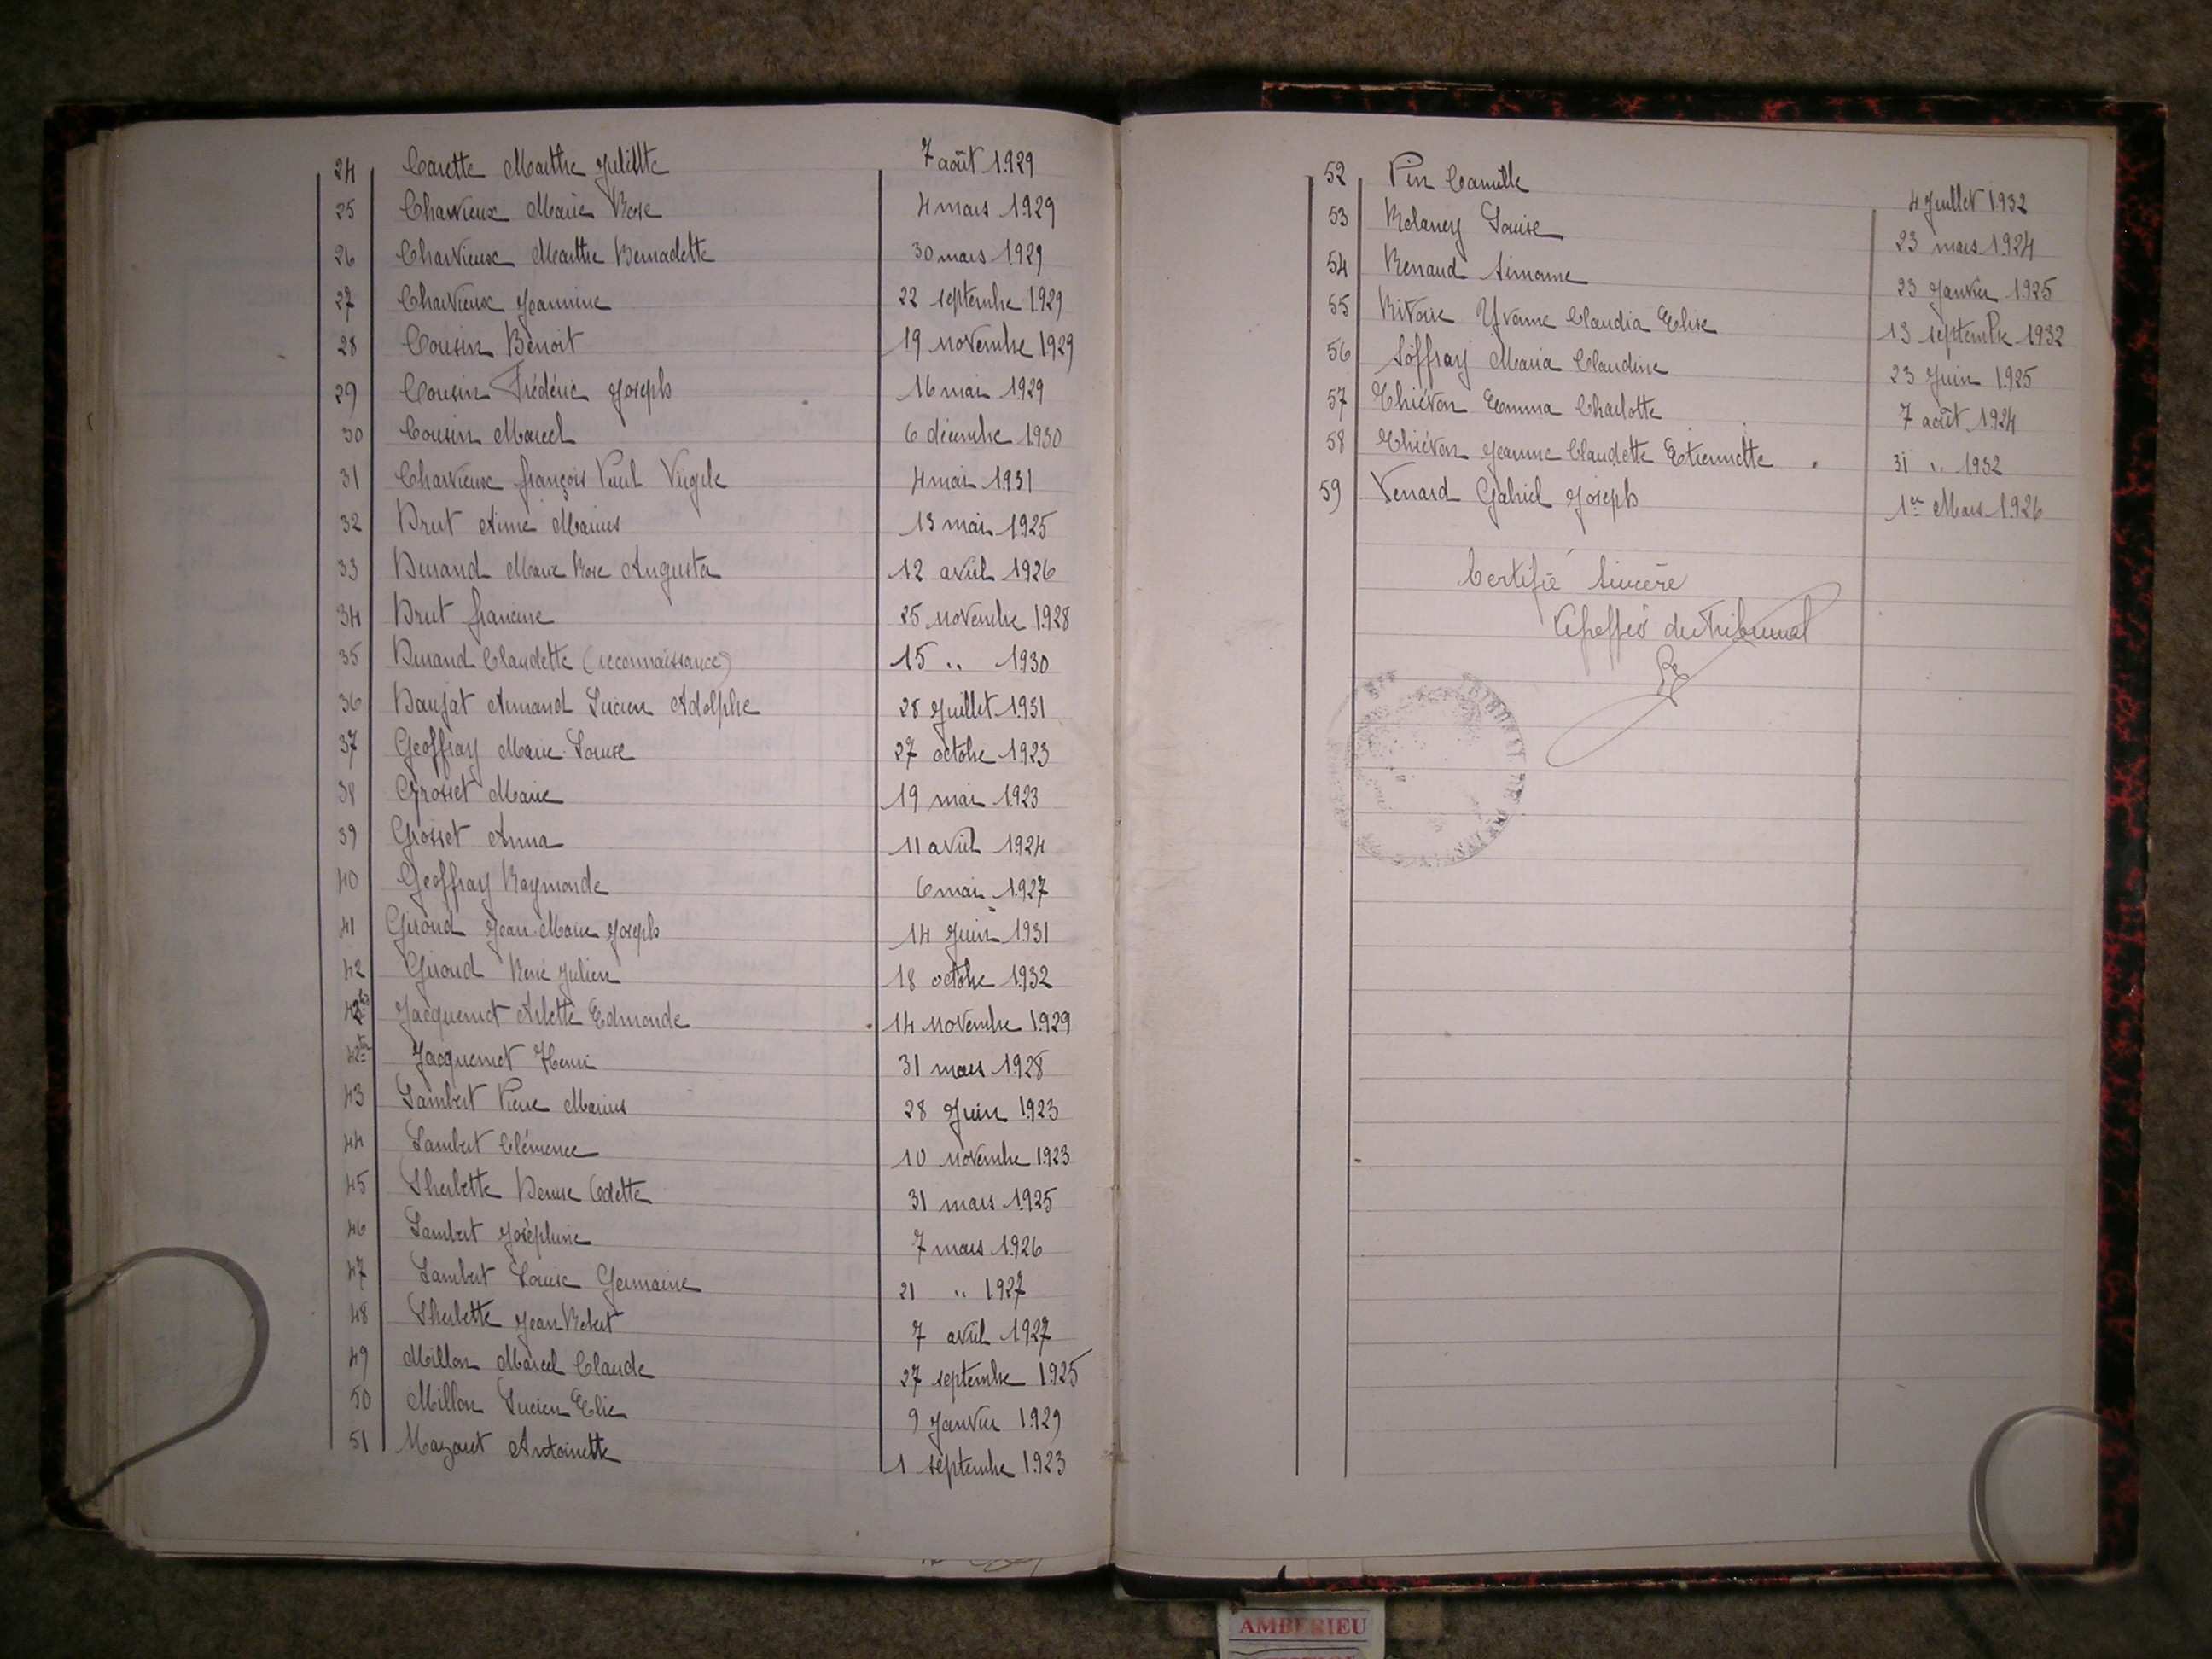 24 Carette Marthe Juliette 7 août 1929
25 Charvieux Marie Rose 4 mars 1929
26 Charvieux Marthe Bernadette 30 mars 1929
27 Charvieux Jeannine 22 septembre 1929
28 Cousin Benoit 19 novembre 1929
29 Cousin Frédéric Joseph 16 mai 1929
30 Cousin Marcel 6 décembre 1930
31 Charvieux françois Paul Virgile 4 mai 1931
32 Drut Aimé Marius 13 mai 1925
33 Durand Marie Rose Augusta 12 avril 1926
34 Drut francine 25 novembre 1928
35 Durand Claudette (reconnaissance) 15 " 1930
36 Daujat Armand Lucien Adolphe 28 Juillet 1931
37 Geoffray Marie-Louise 27 octobre 1923
38 Grosset Marie 19 mai 1923
39 Grosset Anna 11 avril 1924
40 Geoffray Raymonde 6 mai 1927
41 Giroud Jean-Marie Joseph 14 Juin 1931
42 Giroud René Julien 18 octobre 1932
42 bis Jacquemet Arlette Edmonde 14 novembre 1929
42 ter Jacquemet Henri 31 mars 1928
43 Lambert Pierre Marius 28 Juin 1923
44 Lambert Clémence 10 novembre 1923
45 Lherbette Denise Odette 31 mars 1925
46 Lambert Joséphine 7 mars 1926
47 Lambert Louise Germaine 21 " 1927
48 Lherbette Jean Robert 7 avril 1927
49 Millon Marcel Claude 27 septembre 1925
50 Millon Lucien Elie 9 Janvier 1929
51 Mazouet Antoinette 1 septembre 1923
52 Pin Camille 4 Juillet 1932
53 Rolaney Louise 23 mars 1924
54 Renaud Simone 23 Janvier 1925
55 Rivoire Yvonne Claudia Elise 13 septembre 1932
56 Soffray Maria Claudine 23 Juin 1925
57 Thiévon Emma Charlotte 7 août 1924
58 Thiévon Jeanne Claudette Etiennette 31 " 1932
59 Venard Gabriel Joseph 1er Mars 1926
Certifié sincère
Le greffier du Tribunal
AMBERIEU